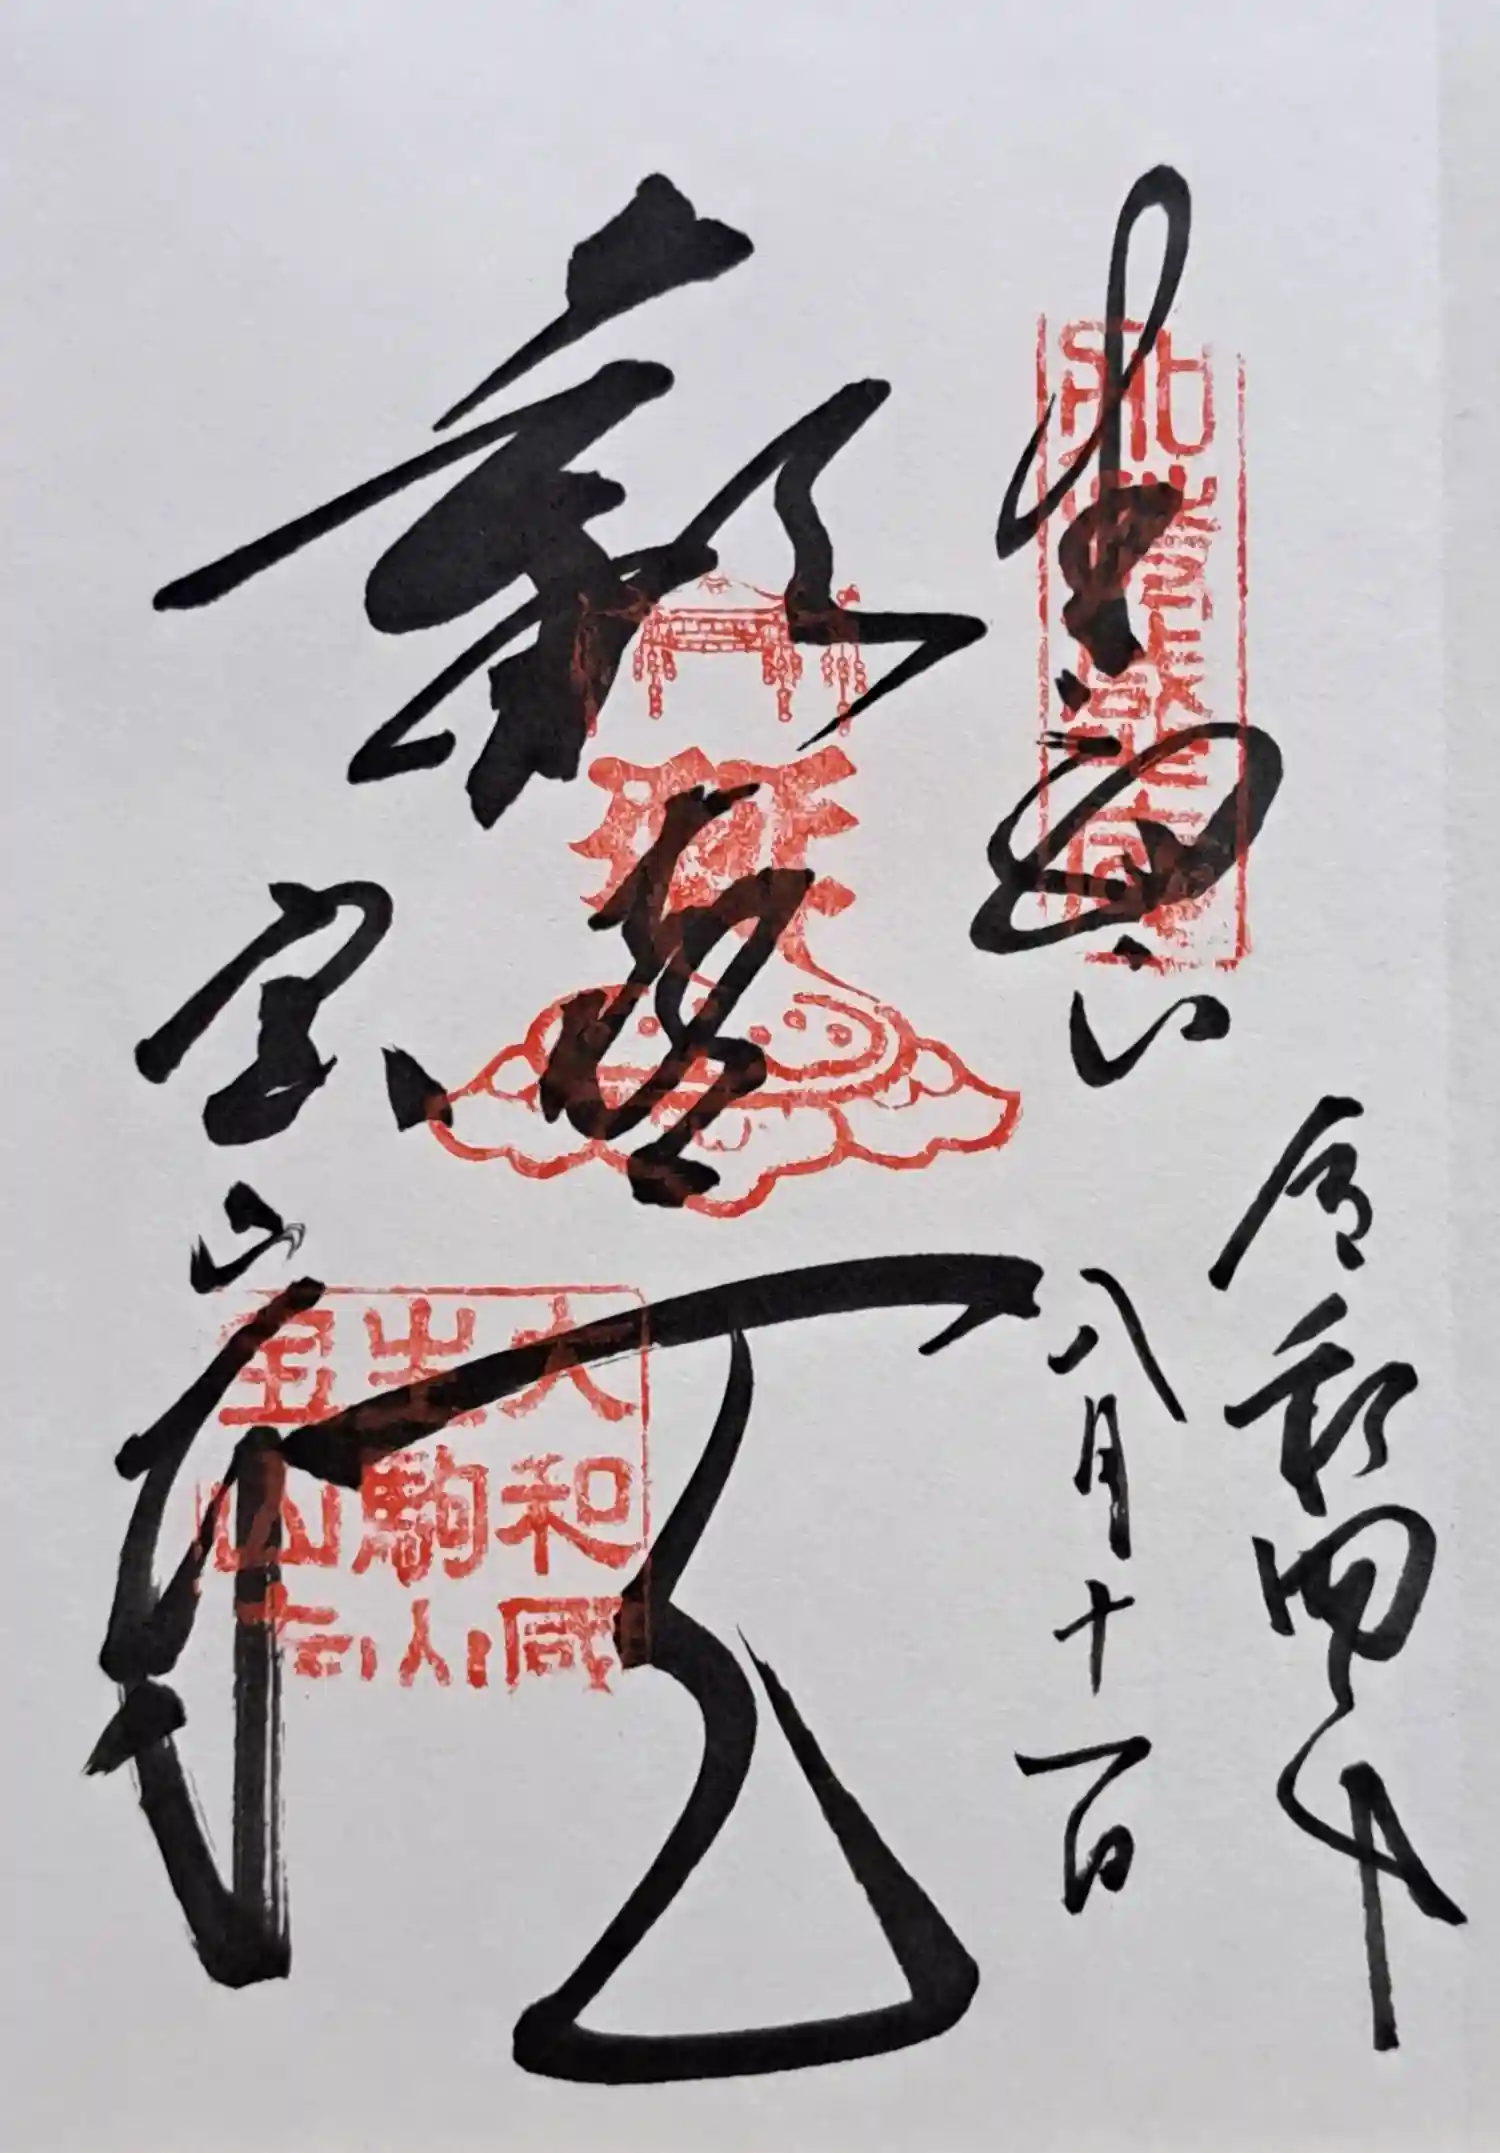 生駒山
令和四年
八月十一日
歓喜天
宝山寺
大和國
生駒山
宝山寺